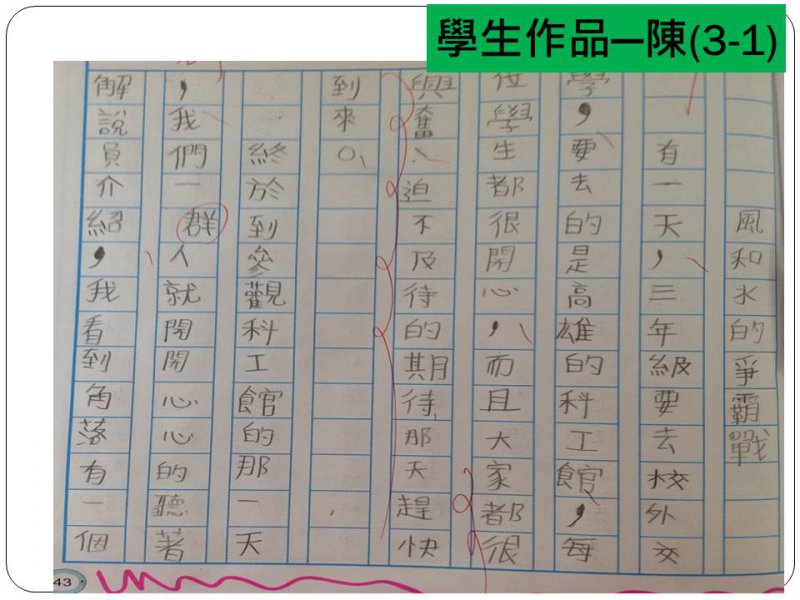 學生作品—陳(3-1)
風和水的爭霸戰
有一天，三年級要去校外交
學，要去的是高雄的科工館，每
位學生都很開心，而且大家都很
興奮、迫不及待的期待那天趕快
到來。
終於到參觀科工館的那一天
，我們一群人就開開心心的聽著
解說員介紹，我看到角落有一個
43